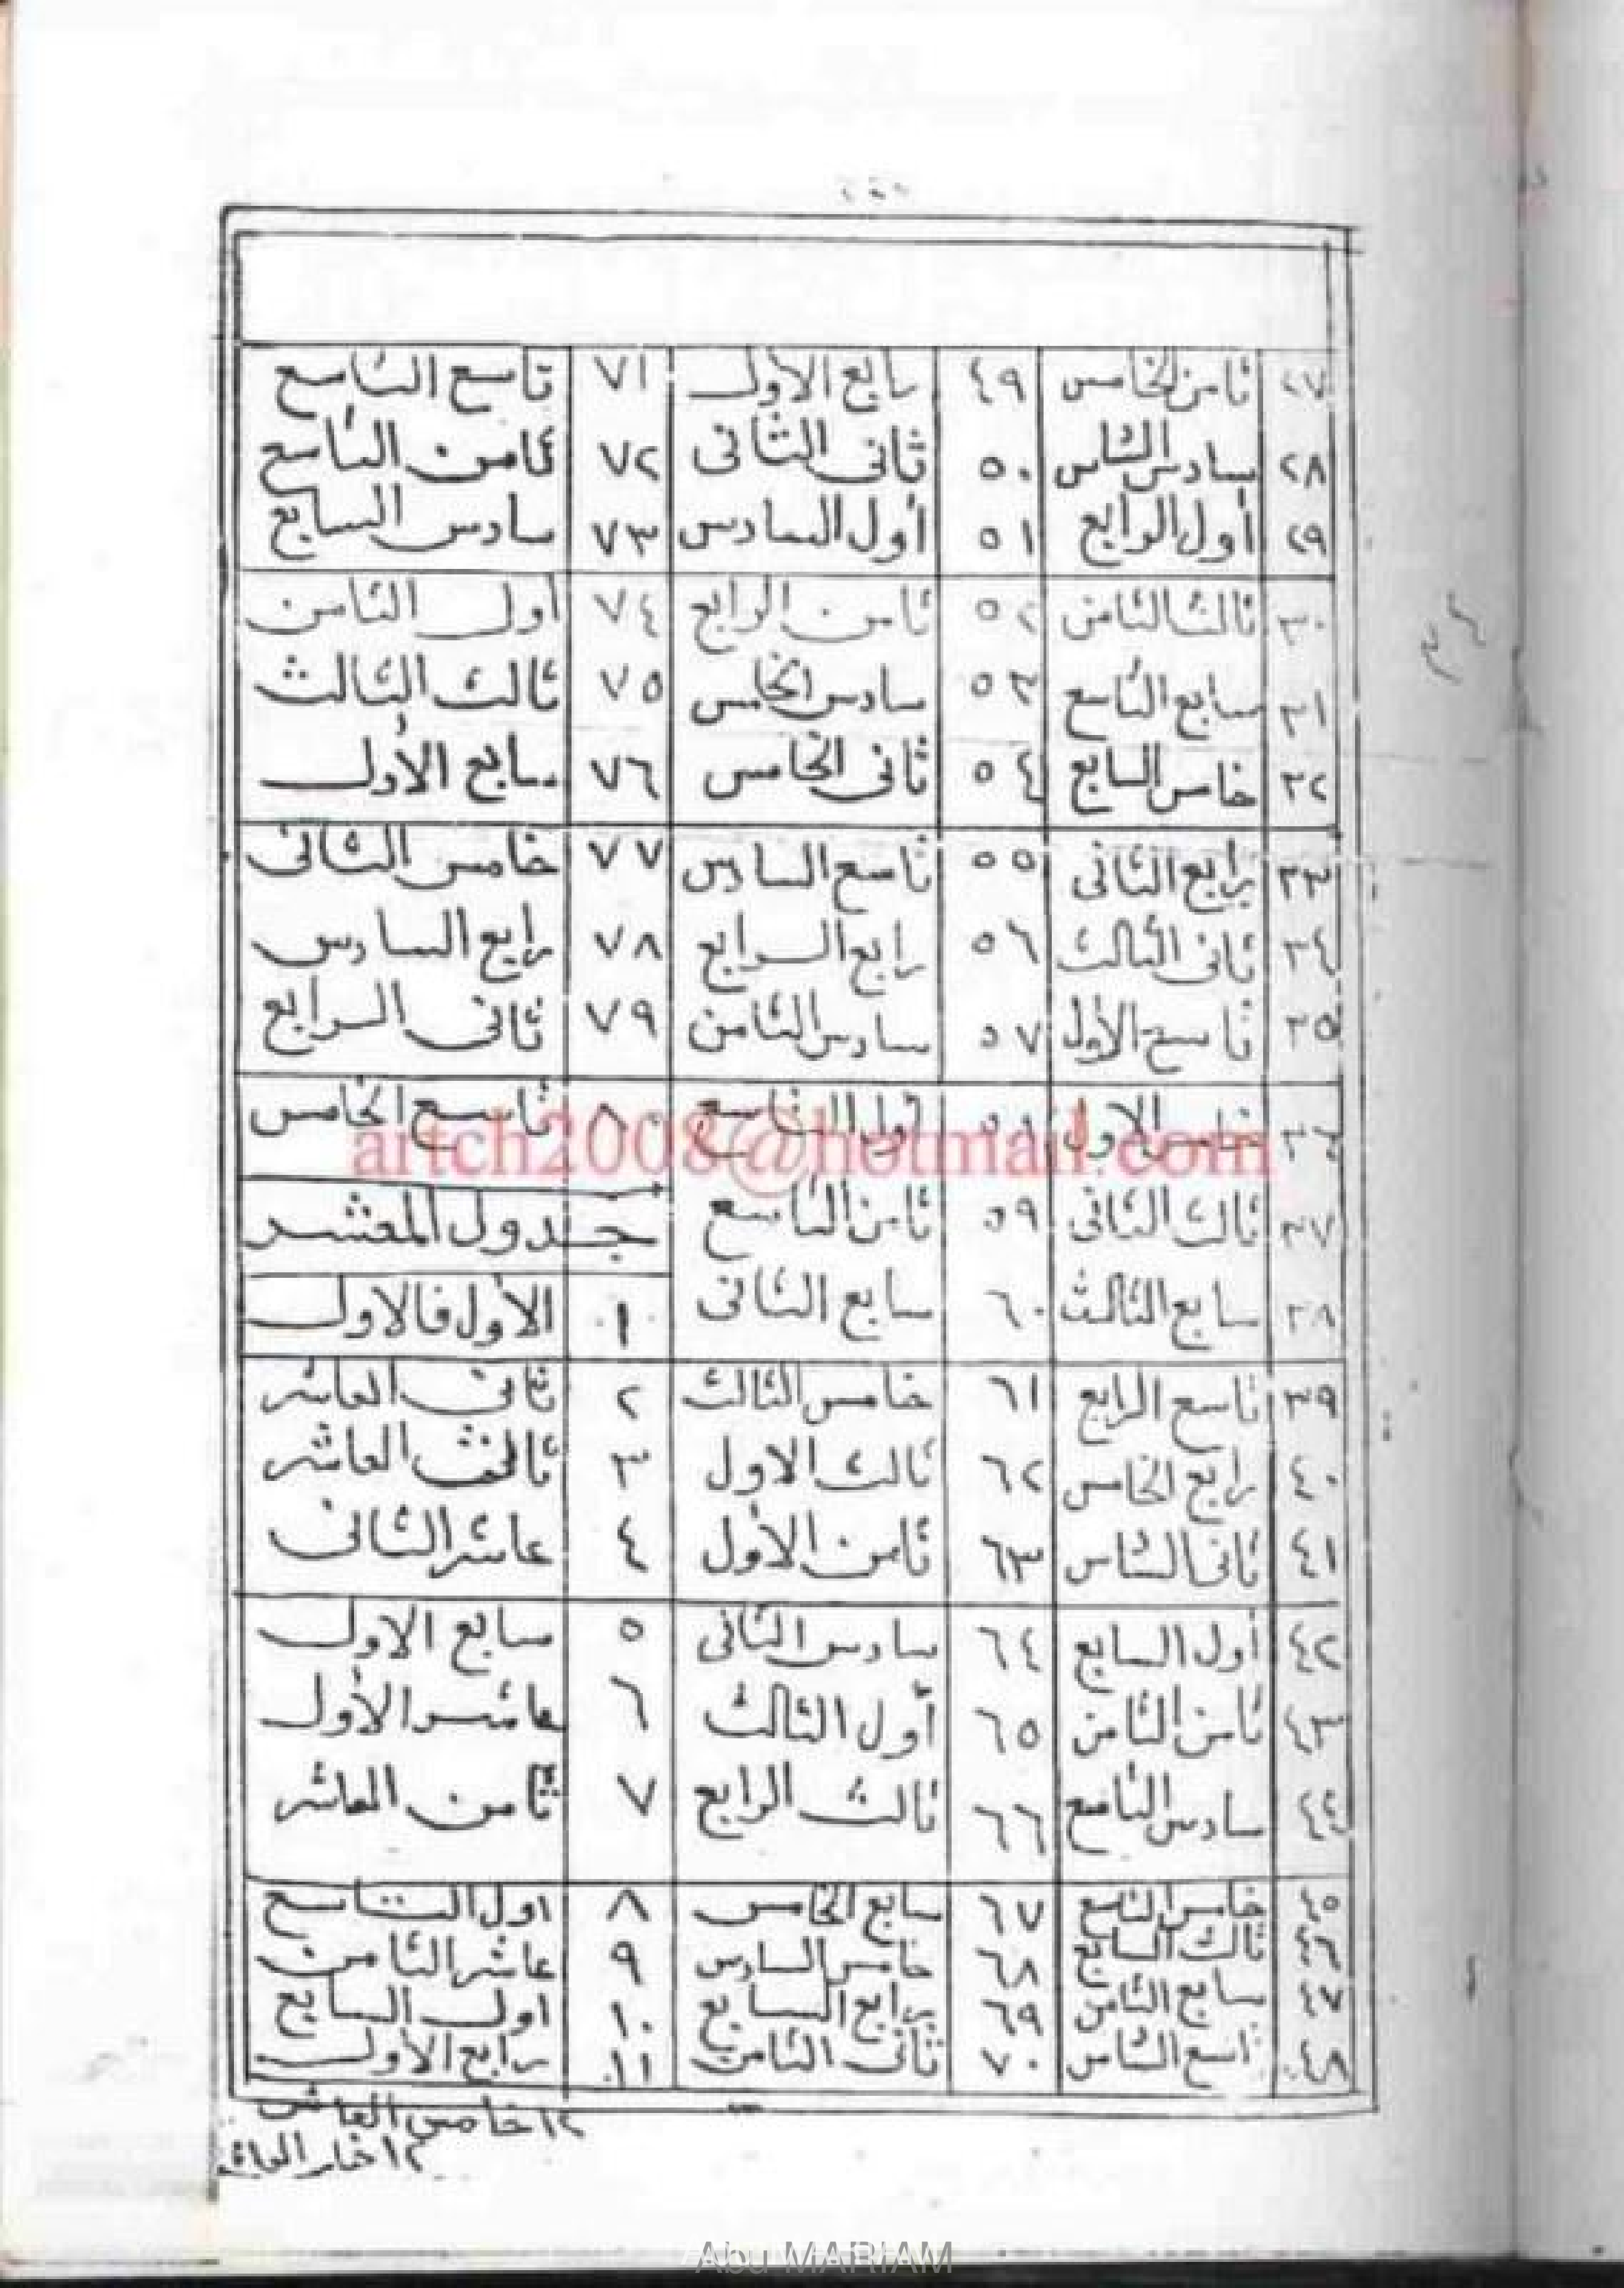 ٢٧ ثامن الخامس ٤٩ سابع الأول ٧١ تاسع التاسع
٢٨ سادس السادس ٥٠ ثانى الثانى ٧٢ ثامن التاسع
٢٩ أول الرابع ٥١ أول السادس ٧٣ سادس السابع
٣٠ ثالث الثامن ٥٢ ثامن الرابع ٧٤ أول الثامن
٣١ سابع التاسع ٥٣ سادس الخامس ٧٥ ثالث الثالث
٣٢ خامس السابع ٥٤ ثانى الخامس ٧٦ سابع الأول
٣٣ رابع الثانى ٥٥ تاسع السادس ٧٧ خامس الثانى
٣٤ ثانى الثالث ٥٦ رابع الرابع ٧٨ رابع السادس
٣٥ تاسع الأول ٥٧ سادس الثامن ٧٩ ثانى الرابع
٣٦ خامس الاول ٥٨ أول التاسع ٨٠ تاسع الخامس
artch2008@hotmail.com
٣٧ ثالث الثانى ٥٩ ثامن التاسع جدول المعشر
٣٨ سابع الثالث ٦٠ سابع الثانى ١ الأول فالاول
٣٩ تاسع الرابع ٦١ خامس الثالث ٢ ثانى العاشر
٤٠ رابع الخامس ٦٢ ثالث الاول ٣ ثالث العاشر
٤١ ثانى السادس ٦٣ ثامن الأول ٤ عاشر الثانى
٤٢ أول السابع ٦٤ سادس الثانى ٥ سابع الاول
٤٣ ثامن الثامن ٦٥ أول الثالث ٦ عاشر الأول
٤٤ سادس التاسع ٦٦ ثالث الرابع ٧ ثامن العاشر
٤٥ خامس التاسع ٦٧ سابع الخامس ٨ اول التاسع
٤٦ ثالث السابع ٦٨ خامس السادس ٩ عاشر الثامن
٤٧ سابع الثامن ٦٩ رابع السابع ١٠ اول السابع
٤٨ تاسع السادس ٧٠ ثانى الثامن ١١ رابع الأول
١٢ خامس العاشر
Abu MARIAM